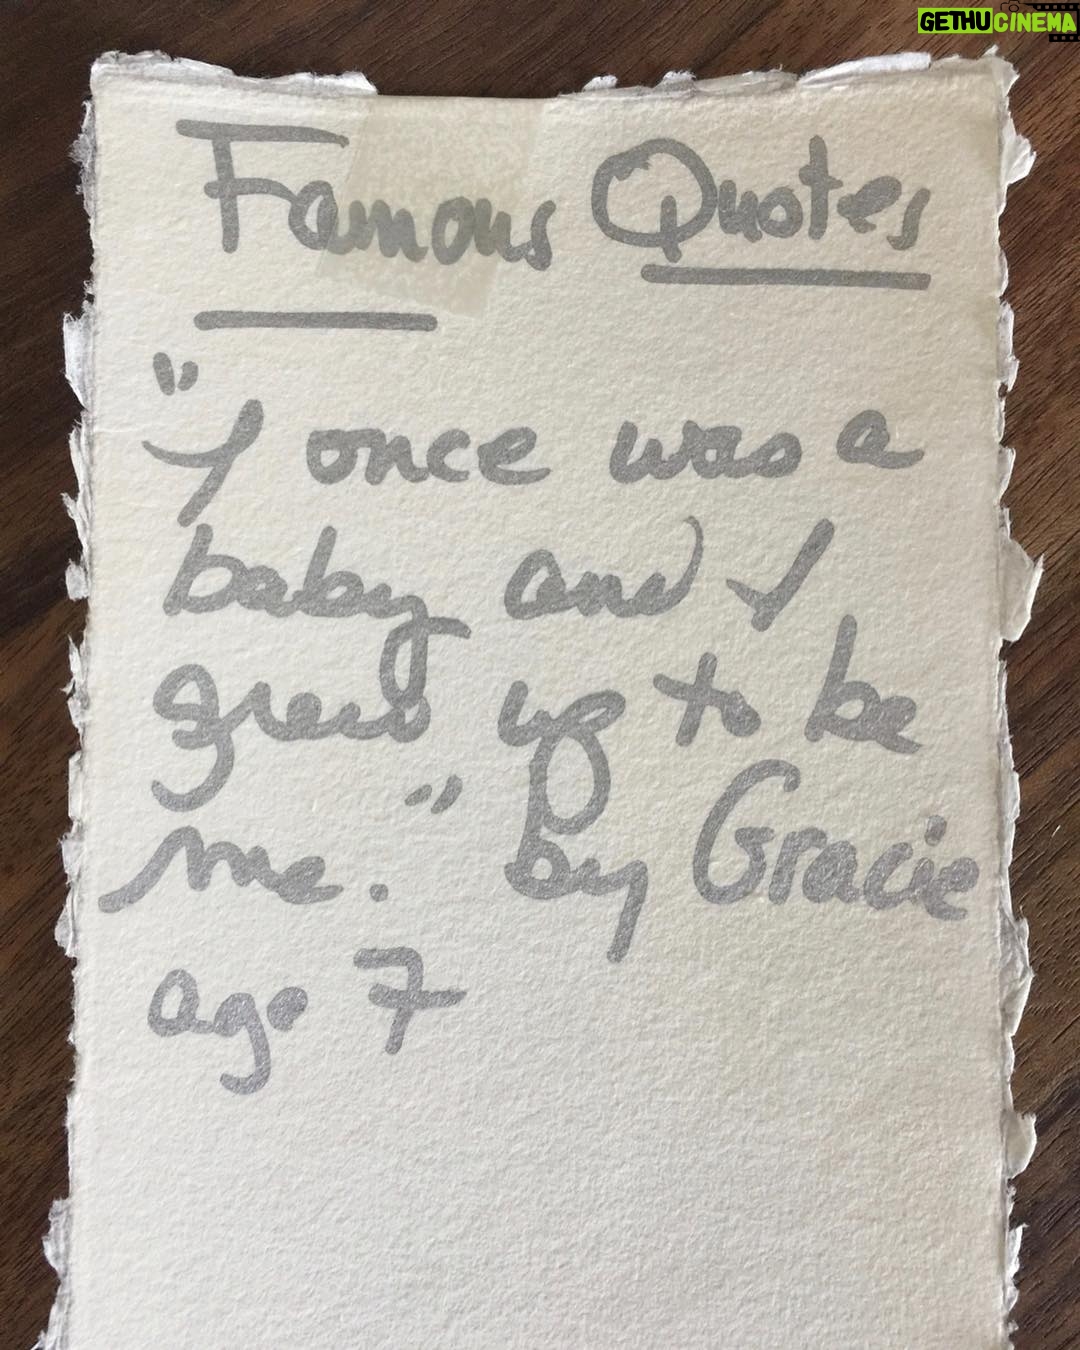 GETHUCINEMA
Famous Quotes
"I once was a
baby and I
grew up to be
me." by Gracie
age 7